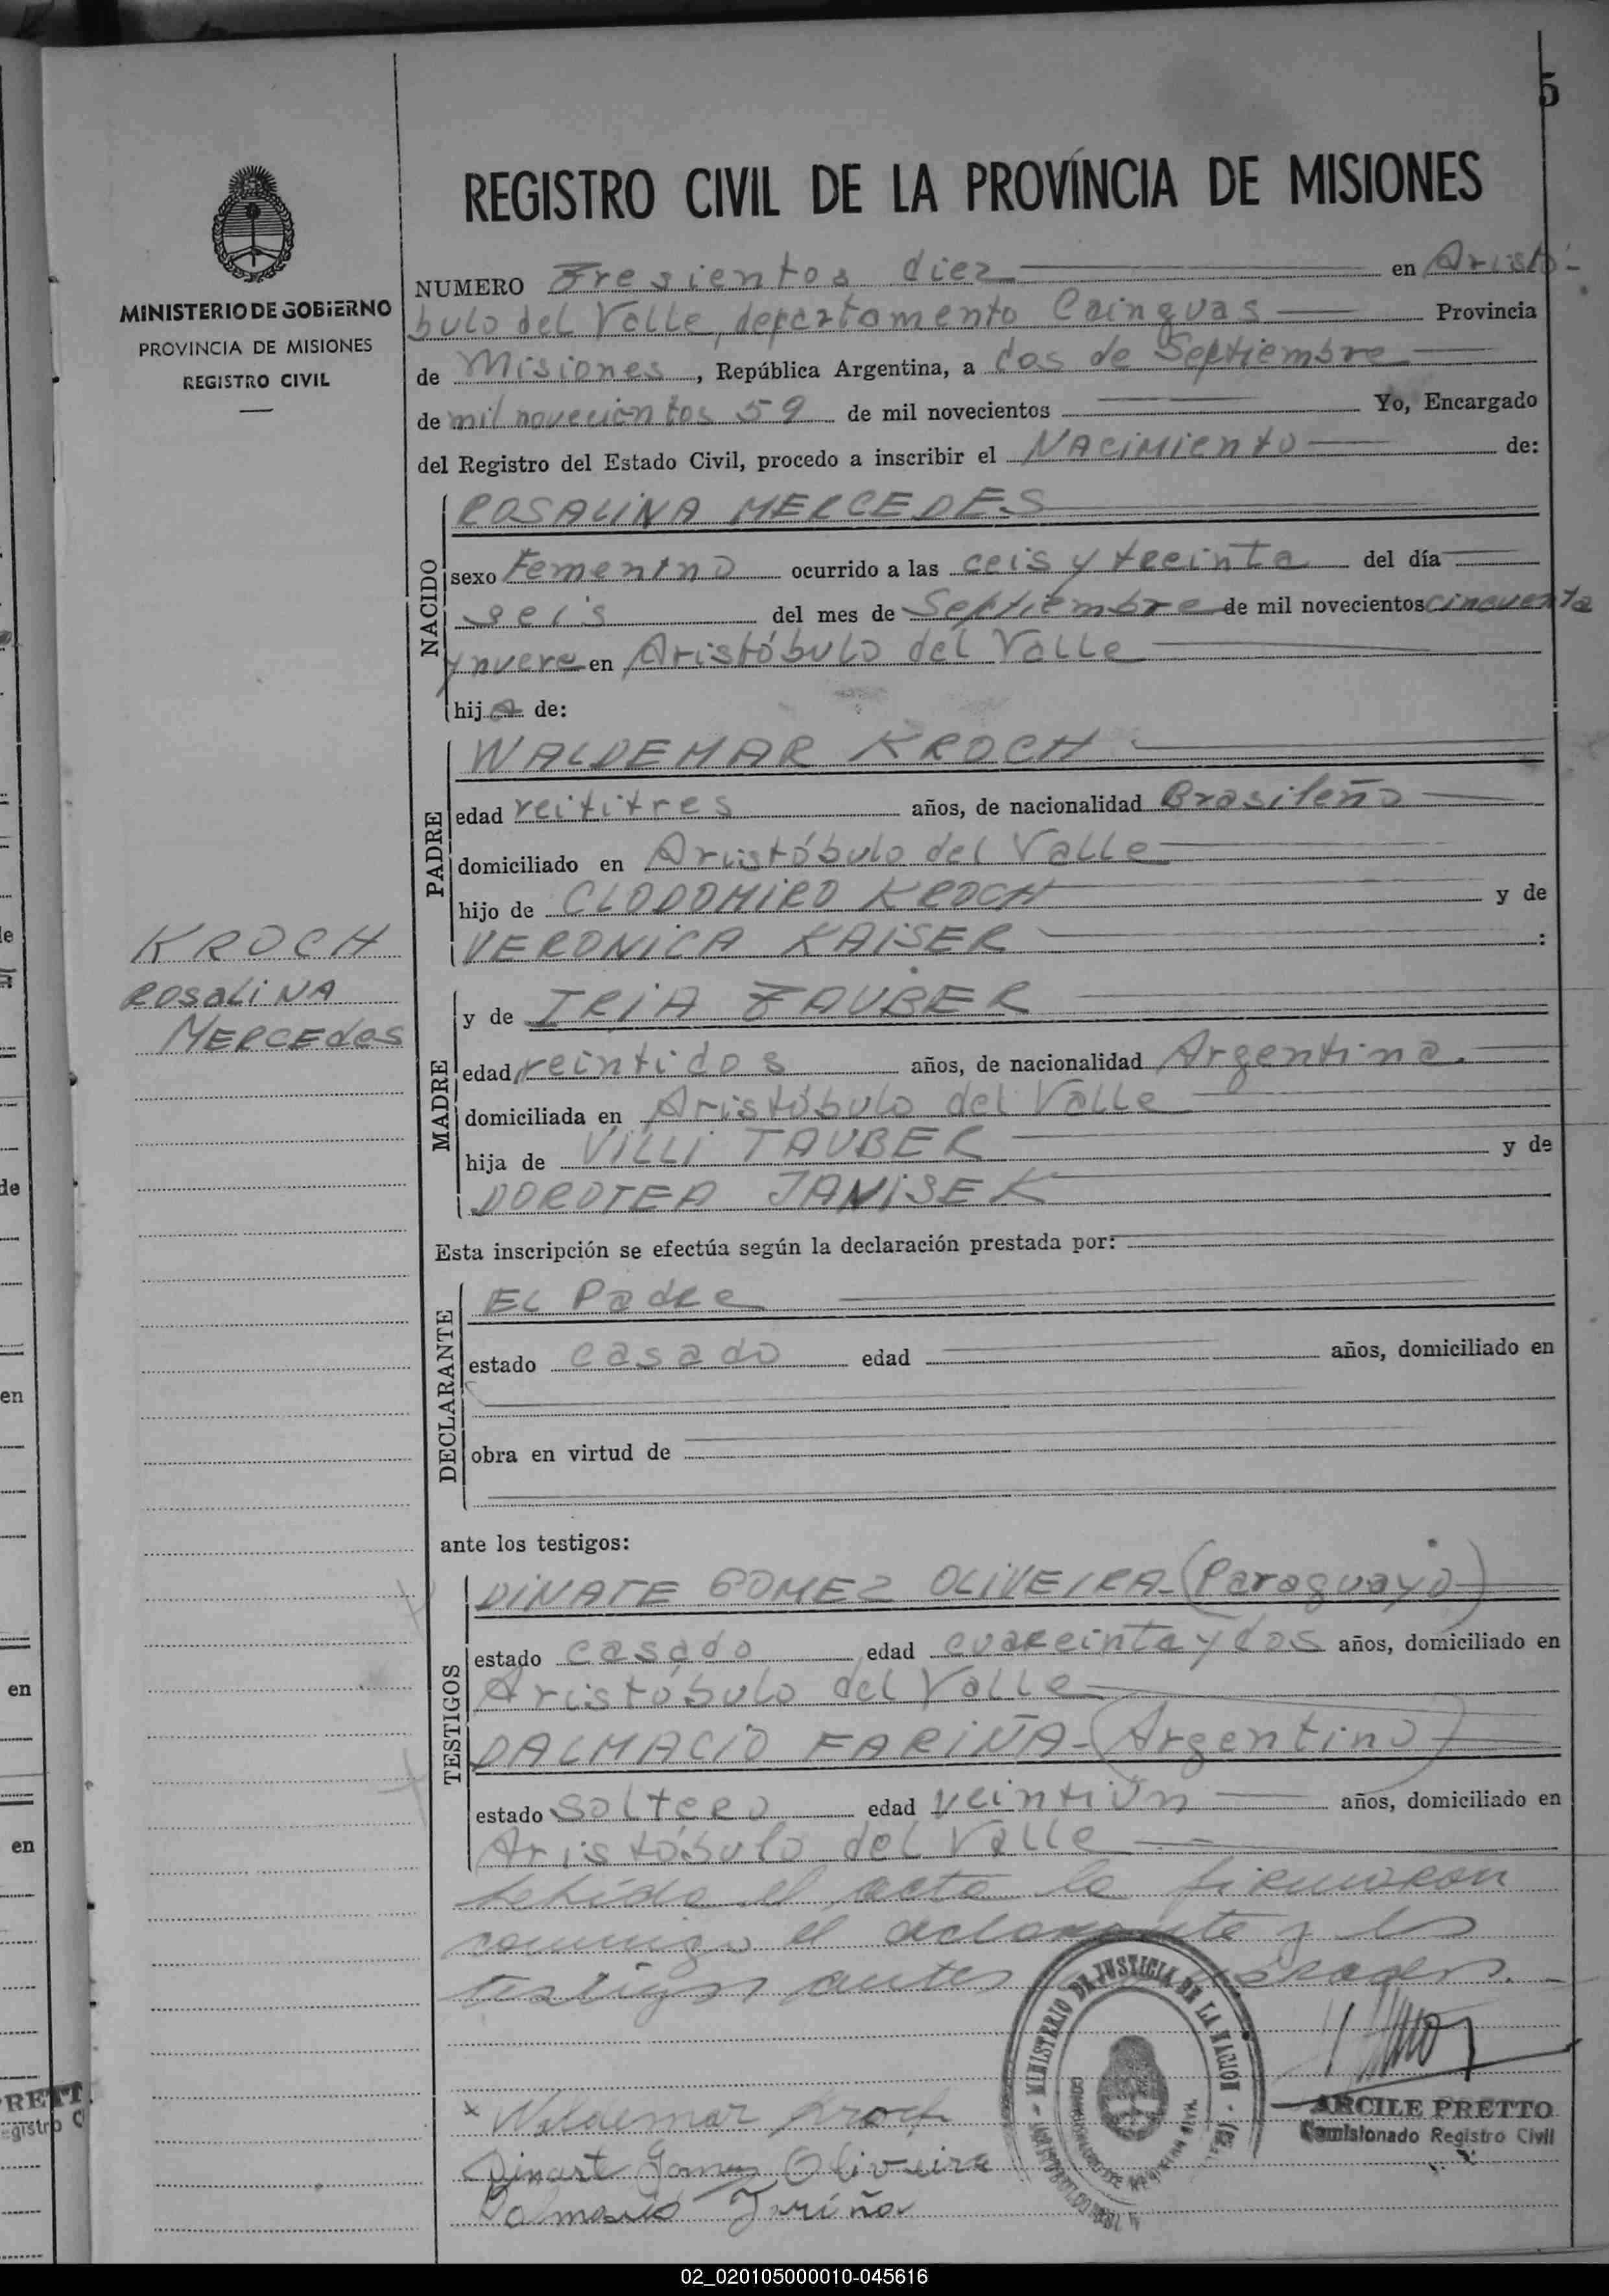 5
REGISTRO CIVIL DE LA PROVINCIA DE MISIONES
MINISTERIO DE GOBIERNO
PROVINCIA DE MISIONES
REGISTRO CIVIL
NUMERO Tresientos diez en Aristó-
bulo del Valle, departamento Cainguas Provincia
de Misiones, República Argentina, a dos de Septiembre
de mil novecientos 59 de mil novecientos Yo, Encargado
del Registro del Estado Civil, procedo a inscribir el NACIMIENTO de:
NACIDO
ROSALINA MERCEDES
sexo Femenino ocurrido a las ceis y treinta del día
seis del mes de Septiembre de mil novecientos cincuenta
y nueve en Aristóbulo del Valle
hija de:
PADRE
WALDEMAR KROCH
edad veititres años, de nacionalidad Brasileño
domiciliado en Aristóbulo del Valle
hijo de CLODOMIRO KROCH y de
VERONICA KAISER :
KROCH
ROSALINA
MERCEDES
MADRE
y de IRIA TAUBER
edad veintidos años, de nacionalidad Argentina.
domiciliada en Aristóbulo del Valle
hija de VILLI TAUBER y de
DOROTEA JANISEK
Esta inscripción se efectúa según la declaración prestada por:
DECLARANTE
EL Padre
estado casado edad años, domiciliado en
obra en virtud de
ante los testigos:
TESTIGOS
DINATE GOMEZ OLIVEIRA-(Paraguayo)
estado casado edad cuareinta y dos años, domiciliado en
Aristóbulo del Valle
DALMACIO FARIÑA-(Argentino)
estado soltero edad veintiún años, domiciliado en
Aristóbulo del Valle
el acta la firmaron
conmigo el declarante y los
testigos antes
MINISTERIO DE JUSTICIA DE LA NACION
Waldemar Kroch
ARCILE PRETTO
Comisionado Registro Civil
Dinarte Gomez Oliveira
Dalmacio Fariña
02_020105000010-045616